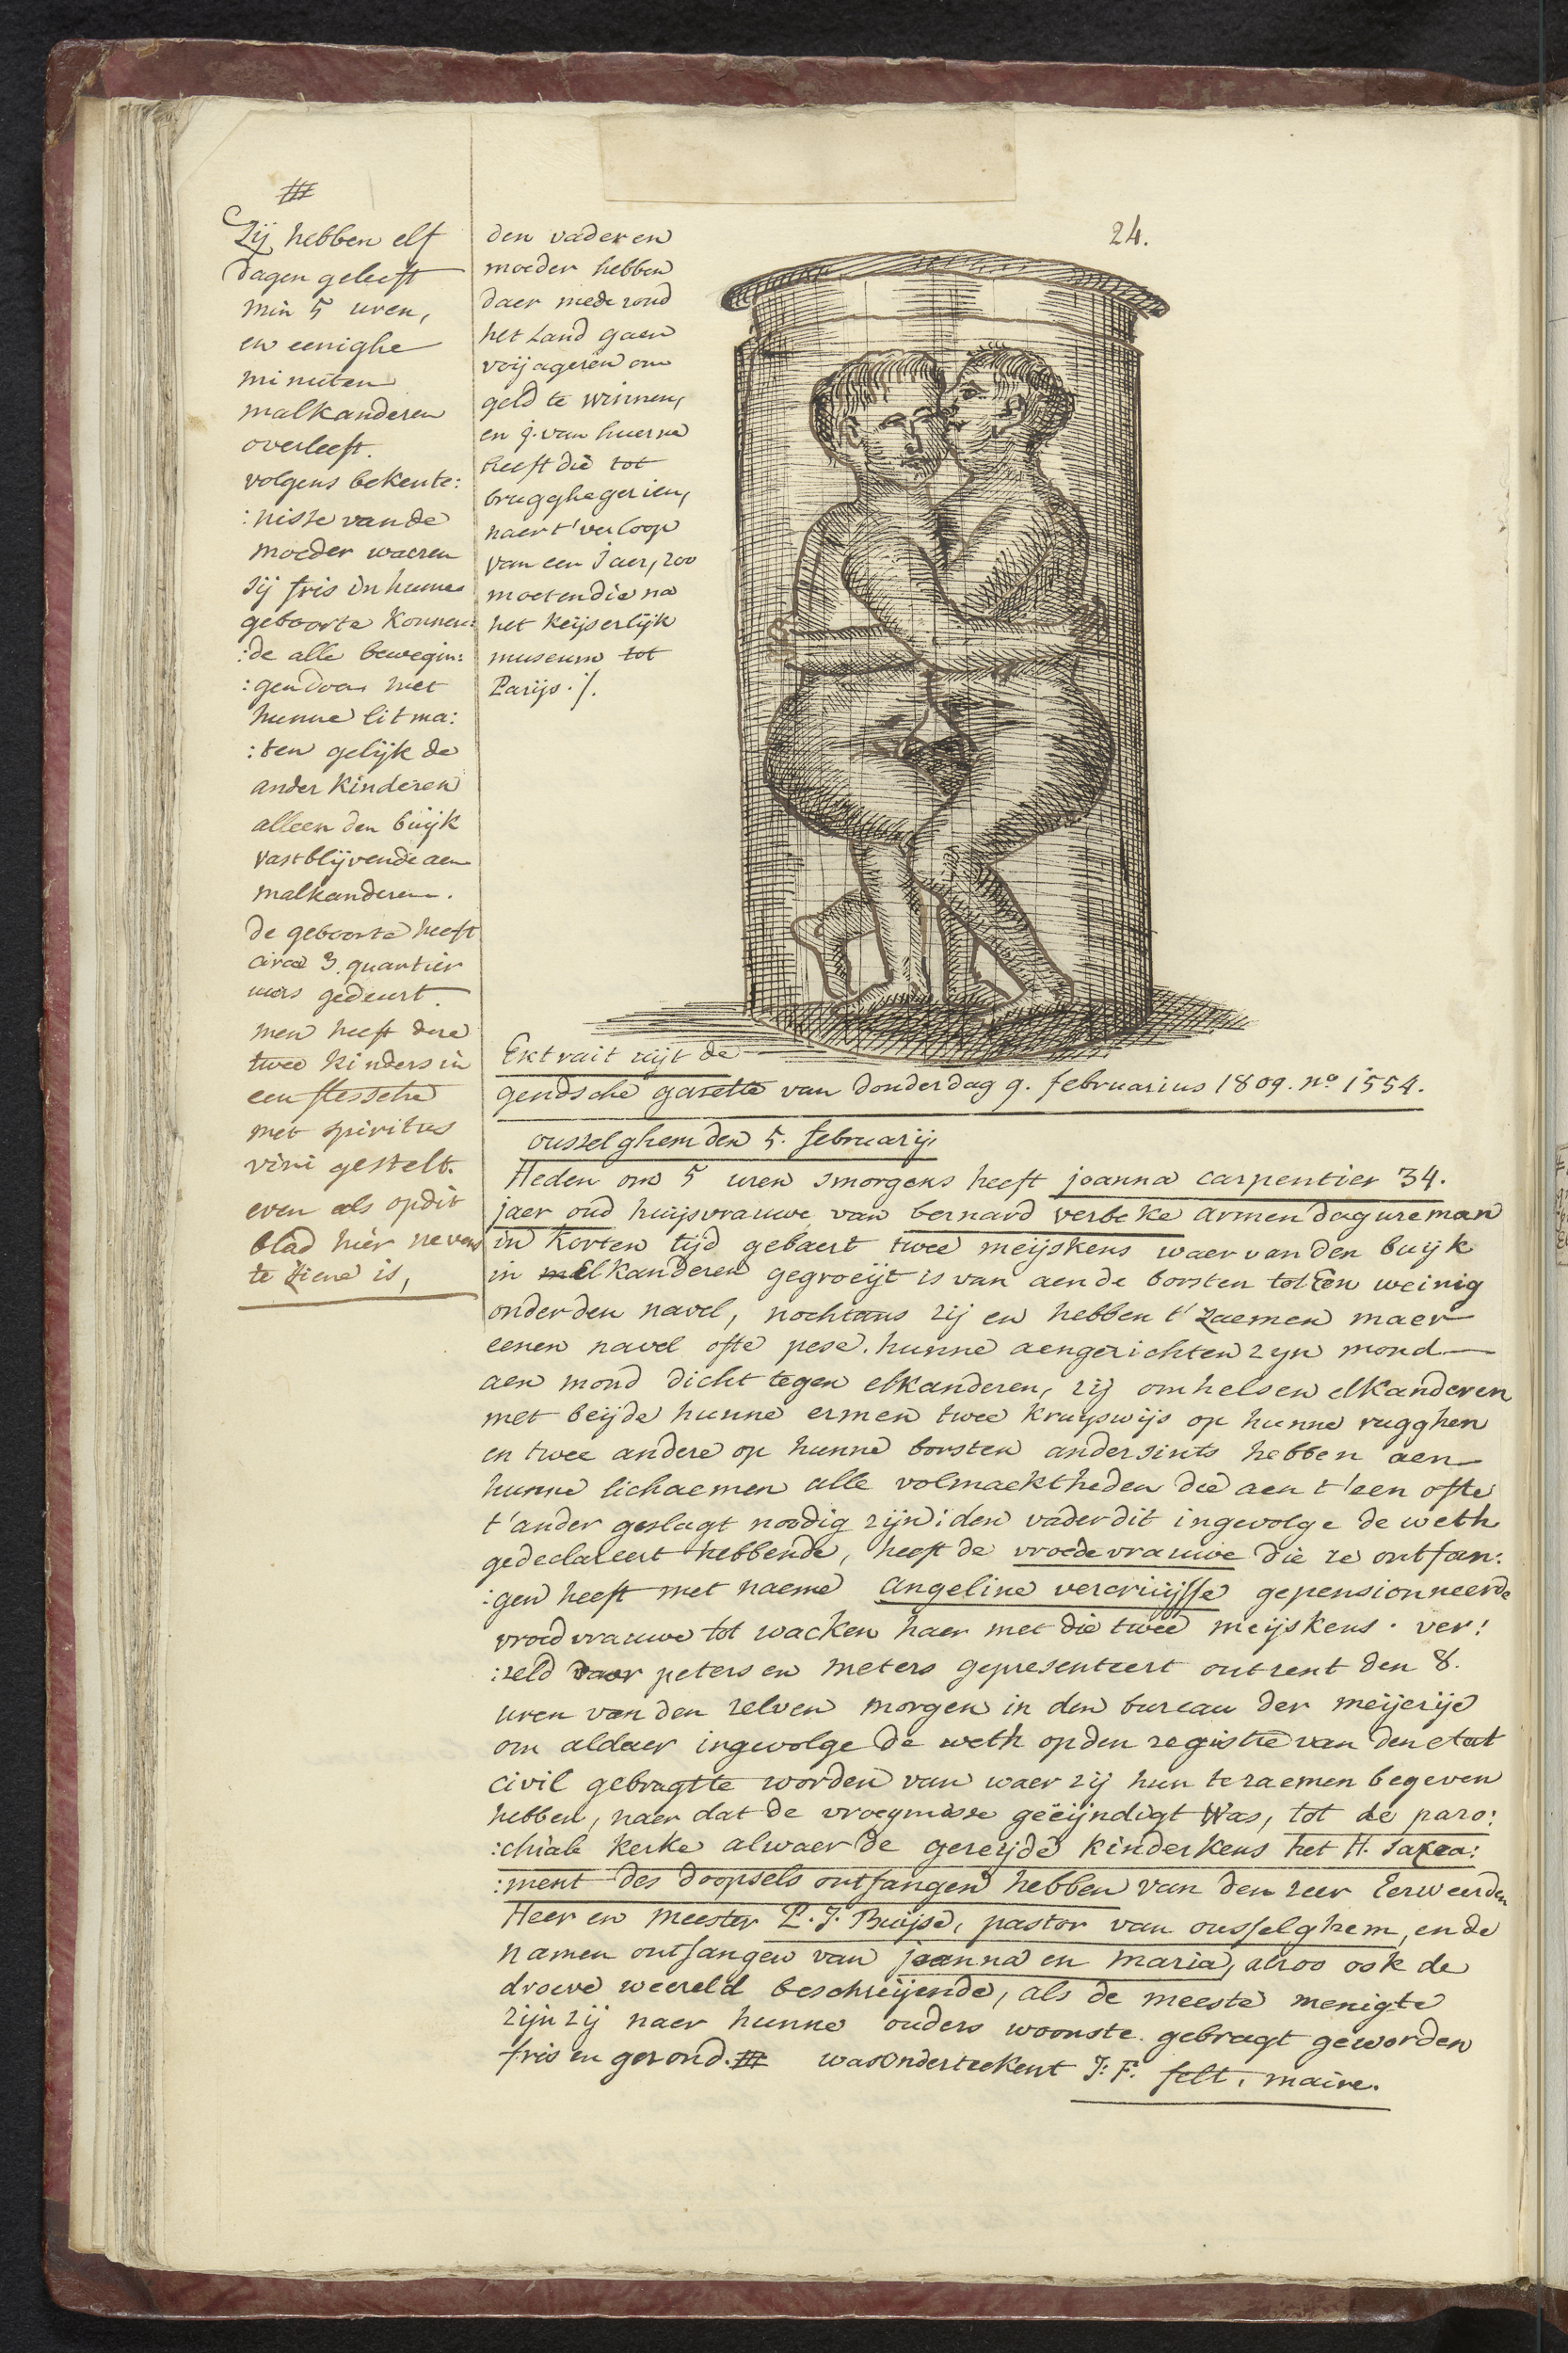 24.
Extrait uijt de
gendsche gazette van donderdag 9. februarius 1809. no 1554.
ousselghem den 5. februarij,
Heden om 5 uren smorgens heeft joanna carpentier 34.
jaer oud huijsvrauwe van bernard verbeke armen dagureman
in korten tijd gebaert twee meijskens waer van den buijk
in melkanderen gegroeijt is van aen de borsten tot een weinig
onder den navel, nochtans zij en hebben t'zaemen maer
eenen navel ofte pese. hunne aengezichten zyn mond
aen mond dicht tegen elkanderen, zij omhelsen elkanderen
met beijde hunne ermen twee kruyswijs op hunne rugghen
en twee andere op hunne borsten andersints hebben aen
hunne lichaemen alle volmaektheden die aen t'een ofte
t'ander geslagt noodig zijn: den vader dit ingevolge de weth
gedeclareert hebbende, heeft de vroedevrauwe die ze ontfan:
:gen heeft met naeme angeline vercruijsse gepensionneerde
vroedvrauwe tot wacken haer met die twee meijskens. ver:
:zeld daor peters en meters gepresenteert ontrent den 8.
uren van den zelven morgen in den bureau der meijerije
om aldaer ingevolge de weth op den registre van den etat
civil gebragtte worden van waer zij hun te zaemen begeven
hebben, naer dat de vroegmisse geëijndigt was, tot de paro:
:chiale kerke alwaer de gezeijde kinderkens het H. Sacra:
:ment des doopsels ontfangen hebben van den zeer Eerweerden
Heer en meester P. J. Buijse, pastor van ousselghem, en de
namen ontfangen van joanna en maria, alzoo ook de
droeve weereld beschreijende, als de meeste menigte
zijn zij naer hunne ouders woonste. gebragt geworden
fris en gezond. # was onderteekent J: F: felt, maire.
#
Zij hebben elf
dagen geleeft
min 5 uren,
en eenighe
minuten
malkanderen
overleeft.
volgens bekente:
:nisse van de
moeder waeren
zij fris in hunne
geboorte konnen:
:de alle bewegin:
:gen doen met
hunne litma:
:ten gelijk de
ander kinderen
alleen den buijk
vastblijvende aen
malkanderen.
de geboorte heeft
circa 3. quartier
uers gedeurt.
men heeft deze
twee kinders in
een flessche
met spiritus
vini gestelt.
even als op dit
blad hier nevens
te ziene is,
den vader en
moeder hebben
daer mede rond
het Land gaen
voijageren om
geld te winnen,
en j. van huerne
heeft die tot
brugghe gezien,
naer t'verloop
van een Jaer, zoo
moeten die na
het keijserlijk
museum tot
Parijs ./.